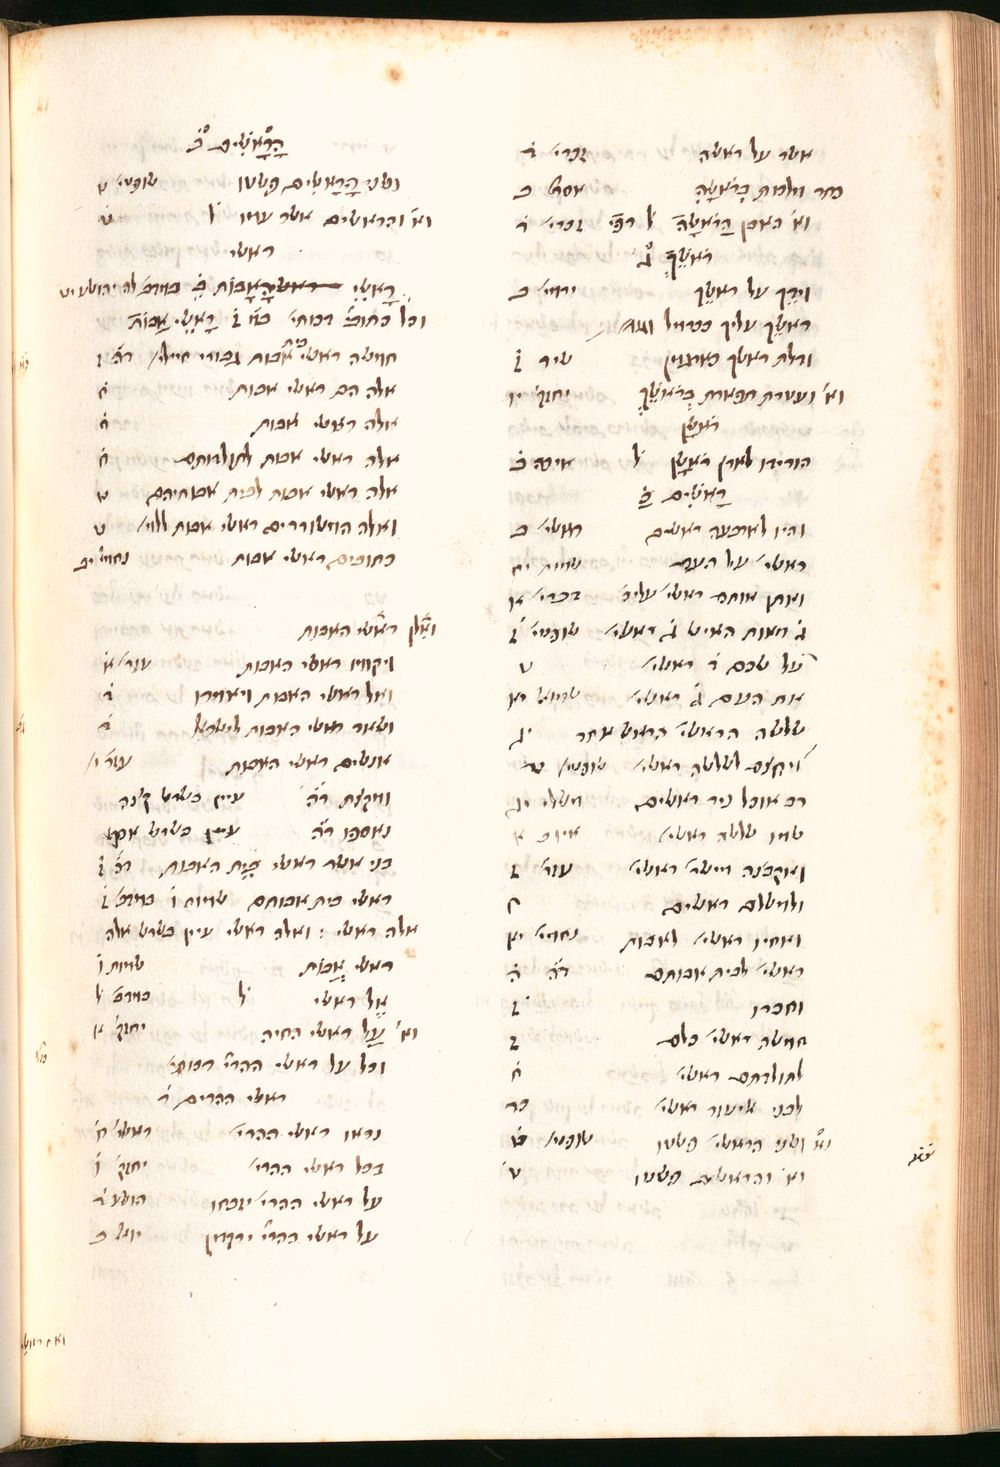 אשר על ראשה זכרי׳ ד
מזר וזלות בראשה אסת׳ ב
וא׳ האבן הראשה ל׳ רפי׳ זכרי׳ ד
ראשך ג
וירך על ראשך ירמי׳ ב
ראשך עליך ככרמל
ודלת ראשך כארגמן שיר ז
וא׳ ועטרת תפארת בראשך יחזק׳ יו
ראשן
הורידו לארץ ראשן ל׳ איכה ב
ראשים כ
והיו לארבעה ראשים בראשי׳ ב
ראשי׳ על העם שמות יח
ואתן אותם ראשי׳ עליכ׳ דברי׳ א
ג׳ מאות האיש ג׳ ראשי׳ שופטי׳ ז
על שכם ד׳ ראשי׳ ט
את העם ג׳ ראשי׳ שמוא׳ יא
שלשה הראשי׳ הראש אחד יג
ויחצם לשלשה ראשי׳ שופטי׳ ט
רב אוכל ניר ראשים משלי יג
שמו שלשה ראשי׳ איוב א
ואקבצה מישר׳ ראשי׳ עזר׳ ז
ולמשלם ראשים ח
ואחיו ראשי׳ לאבות נחמי׳ יא
ראשי׳ לבית אבותם דה׳ ה
וחברו ז
חמשה ראשי׳ כלם ז
לתולדתם ראשי׳ ח
לבני אלעזר ראשי׳ כד
וא׳ ושני הראשי׳ פשטו שופטי׳ ט
וא׳ והראשים פשטו ט
הראשים כ
ושני הראשים פשטו שופטי׳ ט
וא׳ והראשים אשר עמו ל׳ ט
ראשי
ראשי האבות כ במדב׳ לה יהושע יט
וכל כתוב׳ דכותי׳ במ׳ ז ראשי אבות
חמשה ראשי בית אבות גבורי חיילי׳ דה׳ ז
אלה הם ראשי אבות ח
אלה ראשי אבות ח
אלה ראשי אבות לתולדותם ח
אלה ראשי אבות לבית אבותיהם ט
ואלה המשוררים ראשי אבות ללוי׳ ט
כתובים ראשי אבות נחמי׳ יב
ראשי האבות
ויקומו ראשי האבות עזר׳ א
ואל ראשי האבות ויאמרו ד
ושאר ראשי האבות לישראל ד
אנשים ראשי האבות עזר׳ י
ומקצת רה׳ עיין בשרש קצה
נאספו רה׳ עיין בשרש אסף
בני אשר ראשי בית האבות דה׳ ז
ראשי בית אבותם שמות ו במדב׳ ז
אלה ראשי : ואלה ראשי עיין בשרש אלה
ראשי אבות שמות ו
אל ראשי ל׳ במדב׳ ל
וא׳ על ראשי החיה יחזק׳ א
וכל על ראשי ההרי׳ דכותי׳
ראשי ההרים ד
נראו ראשי ההרי׳ בראשי׳ ח
בכל ראשי ההרי׳ יחזק׳ ו
על ראשי ההרי׳ יזבחו הושע ד
על ראשי ההרי׳ ירקדון יואל ב